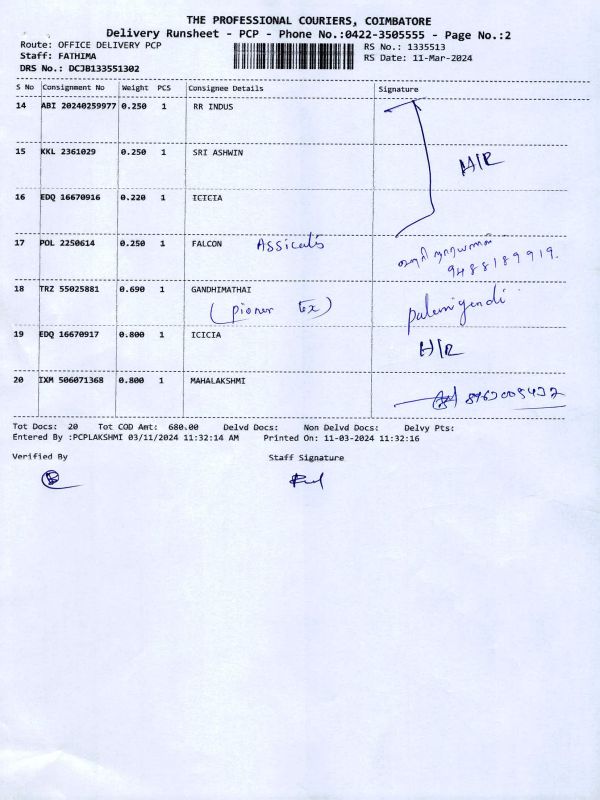 THE PROFESSIONAL COURIERS, COIMBATORE
Delivery Runsheet - PCP - Phone No.:0422-3505555 - Page No.:2
Route: OFFICE DELIVERY PCP
Staff: FATHIMA
DRS No.: DCJB133551302
RS No.: 1335513
RS Date: 11-Mar-2024
S No Consignment No Weight PCS Consignee Details Signature
14 ABI 20240259977 0.250 1 RR INDUS
15 KKL 2361029 0.250 1 SRI ASHWIN H/R
16 EDQ 16670916 0.220 1 ICICIA
17 POL 2250614 0.250 1 FALCON
9488189919.
18 TRZ 55025881 0.690 1 GANDHIMATHAI
(pioner Tex)
19 EDQ 16670917 0.800 1 ICICIA H/R
20 IXM 506071368 0.800 1 MAHALAKSHMI
Tot Docs: 20 Tot COD Amt: 680.00 Delvd Docs: Non Delvd Docs: Delvy Pts:
Entered By :PCPLAKSHMI 03/11/2024 11:32:14 AM Printed On: 11-03-2024 11:32:16
Verified By Staff Signature